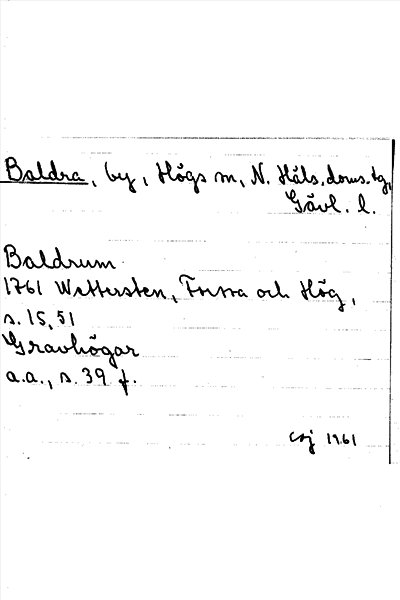 Baldra, by, Högs sn, N. Häls. doms.tg,
Gävl. l.
Baldrum
1761 Wettersten, Forsa och Hög,
s. 15, 51
Gravhögar
a.a., s. 39 f.
1961